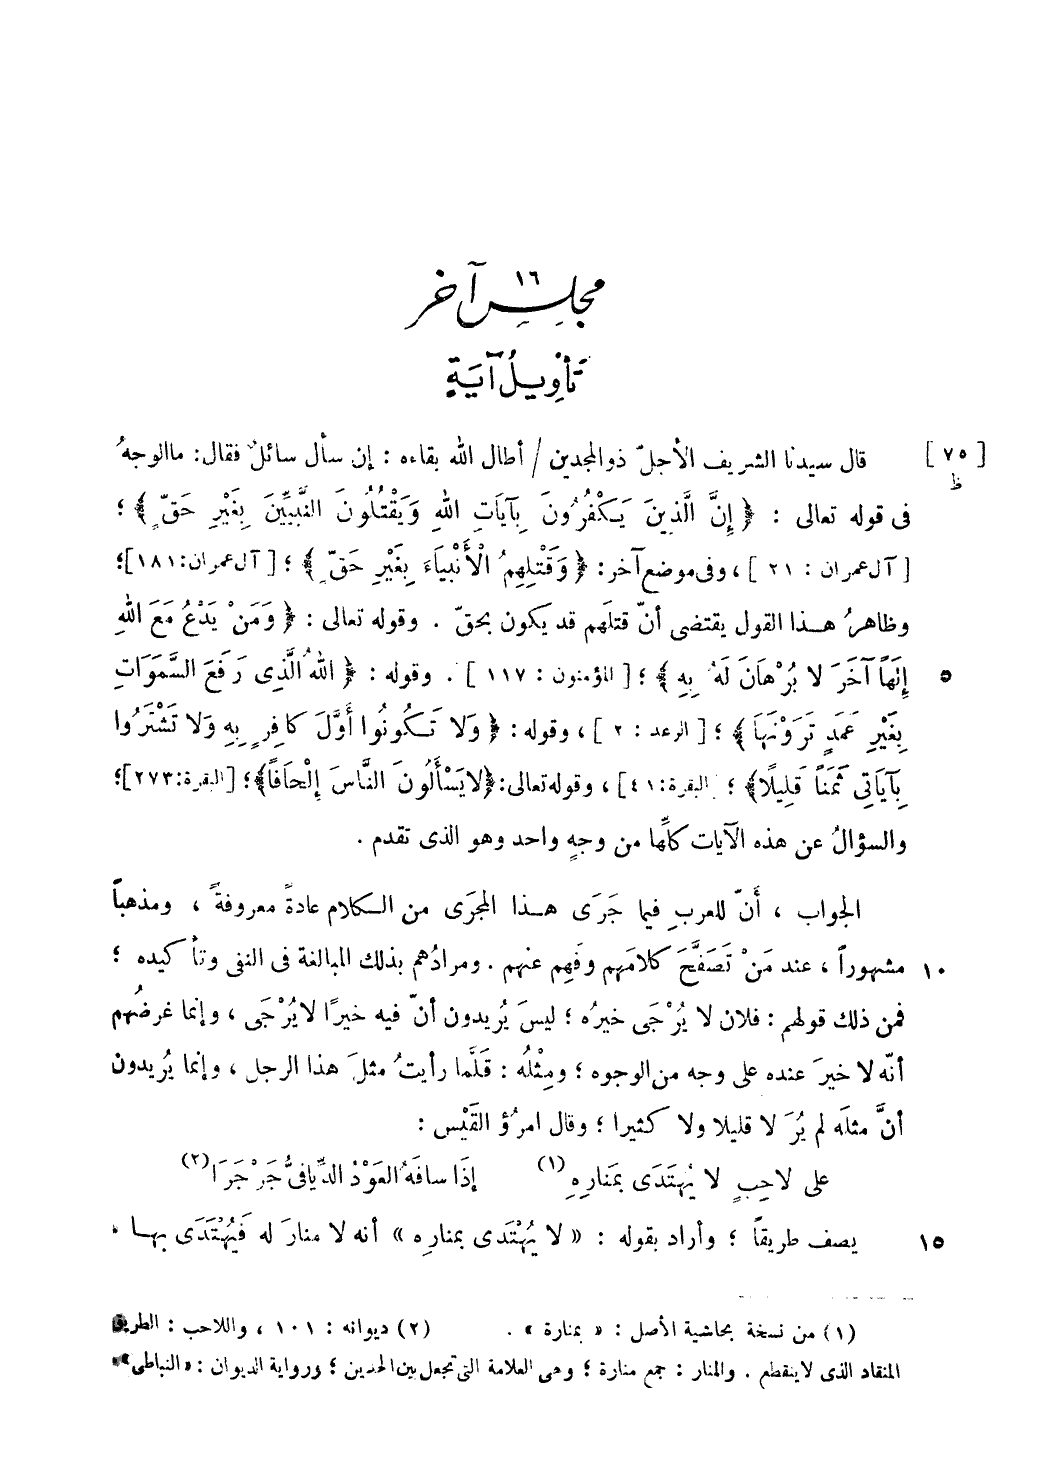 ١٦
مجلس آخر
تأويل آية
[٧٥ ظ] قال سيدنا الشريف الأجلّ ذو المجدين / أطال الله بقاءه : إن سأل سائلٌ فقال: ما الوجهُ
فى قوله تعالى : ﴿إِنَّ الَّذِينَ يَكْفُرُونَ بِآيَاتِ اللهِ وَيَقْتُلُونَ النَّبِيِّينَ بِغَيْرِ حَقٍّ﴾ ؛
[آل عمران : ٢١ ] ، وفى موضع آخر: ﴿وَقَتْلِهِمُ الْأَنْبِيَاءَ بِغَيْرِ حَقٍّ﴾ ؛ [آل عمران:١٨١]؛
وظاهرُ هذا القول يقتضى أنّ قتلَهم قد يكون بحقّ . وقوله تعالى : ﴿وَمَنْ يَدْعُ مَعَ اللهِ
إِلَهًا آخَرَ لا بُرْهَانَ لَهُ بِهِ﴾ ؛ [المؤمنون : ١١٧ ] . وقوله : ﴿اللهُ الَّذِى رَفَعَ السَّمَوَاتِ ٥
بِغَيْرِ عَمَدٍ تَرَوْنَهَا﴾ ؛ [الرعد : ٢ ] ، وقوله : ﴿وَلا تَكُونُوا أَوَّلَ كافِرٍ بِهِ وَلا تَشْتَرُوا
بِآيَاتِى ثَمَنًا قَلِيلًا﴾ ؛ [البقرة:٤١] ، وقوله تعالى: ﴿لا يَسْأَلُونَ النَّاسَ إِلْحَافًا﴾؛ [البقرة:٢٧٣]؛
والسؤالُ عن هذه الآيات كلِّها من وجهٍ واحد وهو الذى تقدم .
الجواب ، أَنّ للعربِ فيما جَرَى هذا المجرَى من الكلام عادةً معروفةً ، ومذهبًا
مشهوراً ، عند مَنْ تَصَفَّحَ كلامَهم وفَهِم عنهم . ومرادُهم بذلك المبالغة فى النفى وتأكيده ؛ ١٠
فمن ذلك قولهم : فلان لا يُرْجَى خيرُه ؛ ليسَ يُريدون أنّ فيه خيرًا لا يُرْجَى ، وإنما غرضُهم
أنّه لا خيرَ عنده على وجه من الوجوه ؛ ومِثْلُه : قَلَّما رأيتُ مثلَ هذا الرجل ، وإنما يُريدون
أنَّ مثلَه لم يُرَ لا قليلا ولا كثيرا ؛ وقال امرُؤ القَيْس :
على لاحِبٍ لا يُهتَدَى بمَنارِهِ (١) إذَا سافَهُ العَوْدُ الدِّيافىُّ جَرْجَرَا (٢)
يصف طريقاً ؛ وأراد بقوله : « لا يُهْتَدَى بمناره » أنه لا منارَ له فَيُهْتَدَى بها . ١٥
(١) من نسخة بحاشية الأصل : « بمنارة » . (٢) ديوانه : ١٠١ ، واللاحب : الطريق
المنقاد الذى لا ينقطع . والمنار : جمع منارة ؛ وهى العلامة التى تجعل بين الحدين ؛ ورواية الديوان : « النباطى »